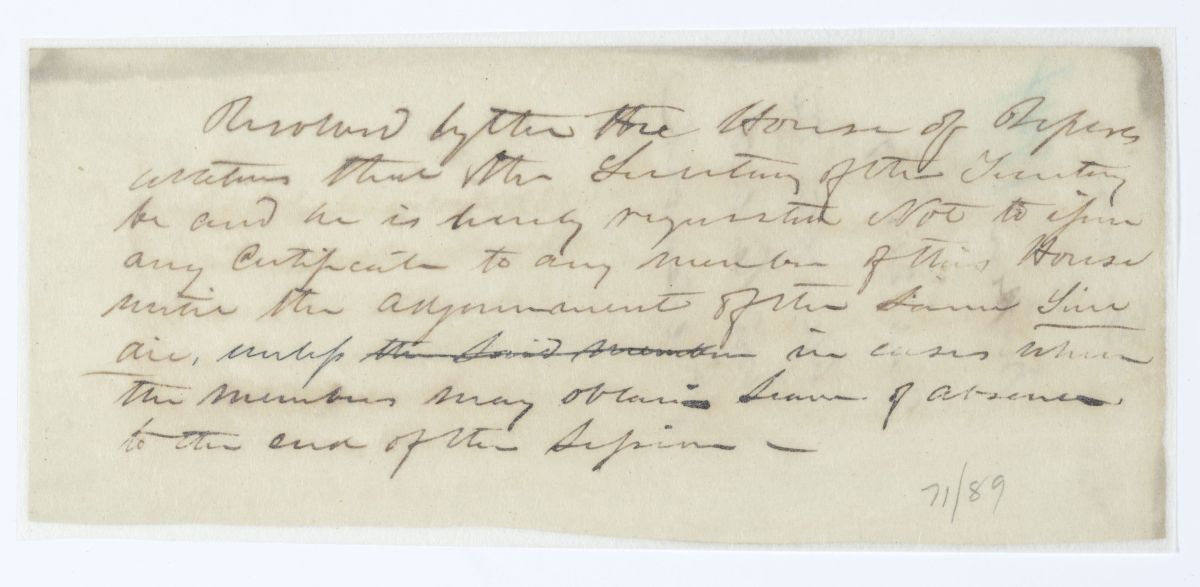 Resolved by the the House of Repres
entatives that the Secretary of the Territory
be and he is hereby requested Not to issue
any Certificate to any member of this House
until the adjournment of the same Sine
die, unless the said member in cases where
the members may obtain leave of absence
to the end of the Session —
71/89